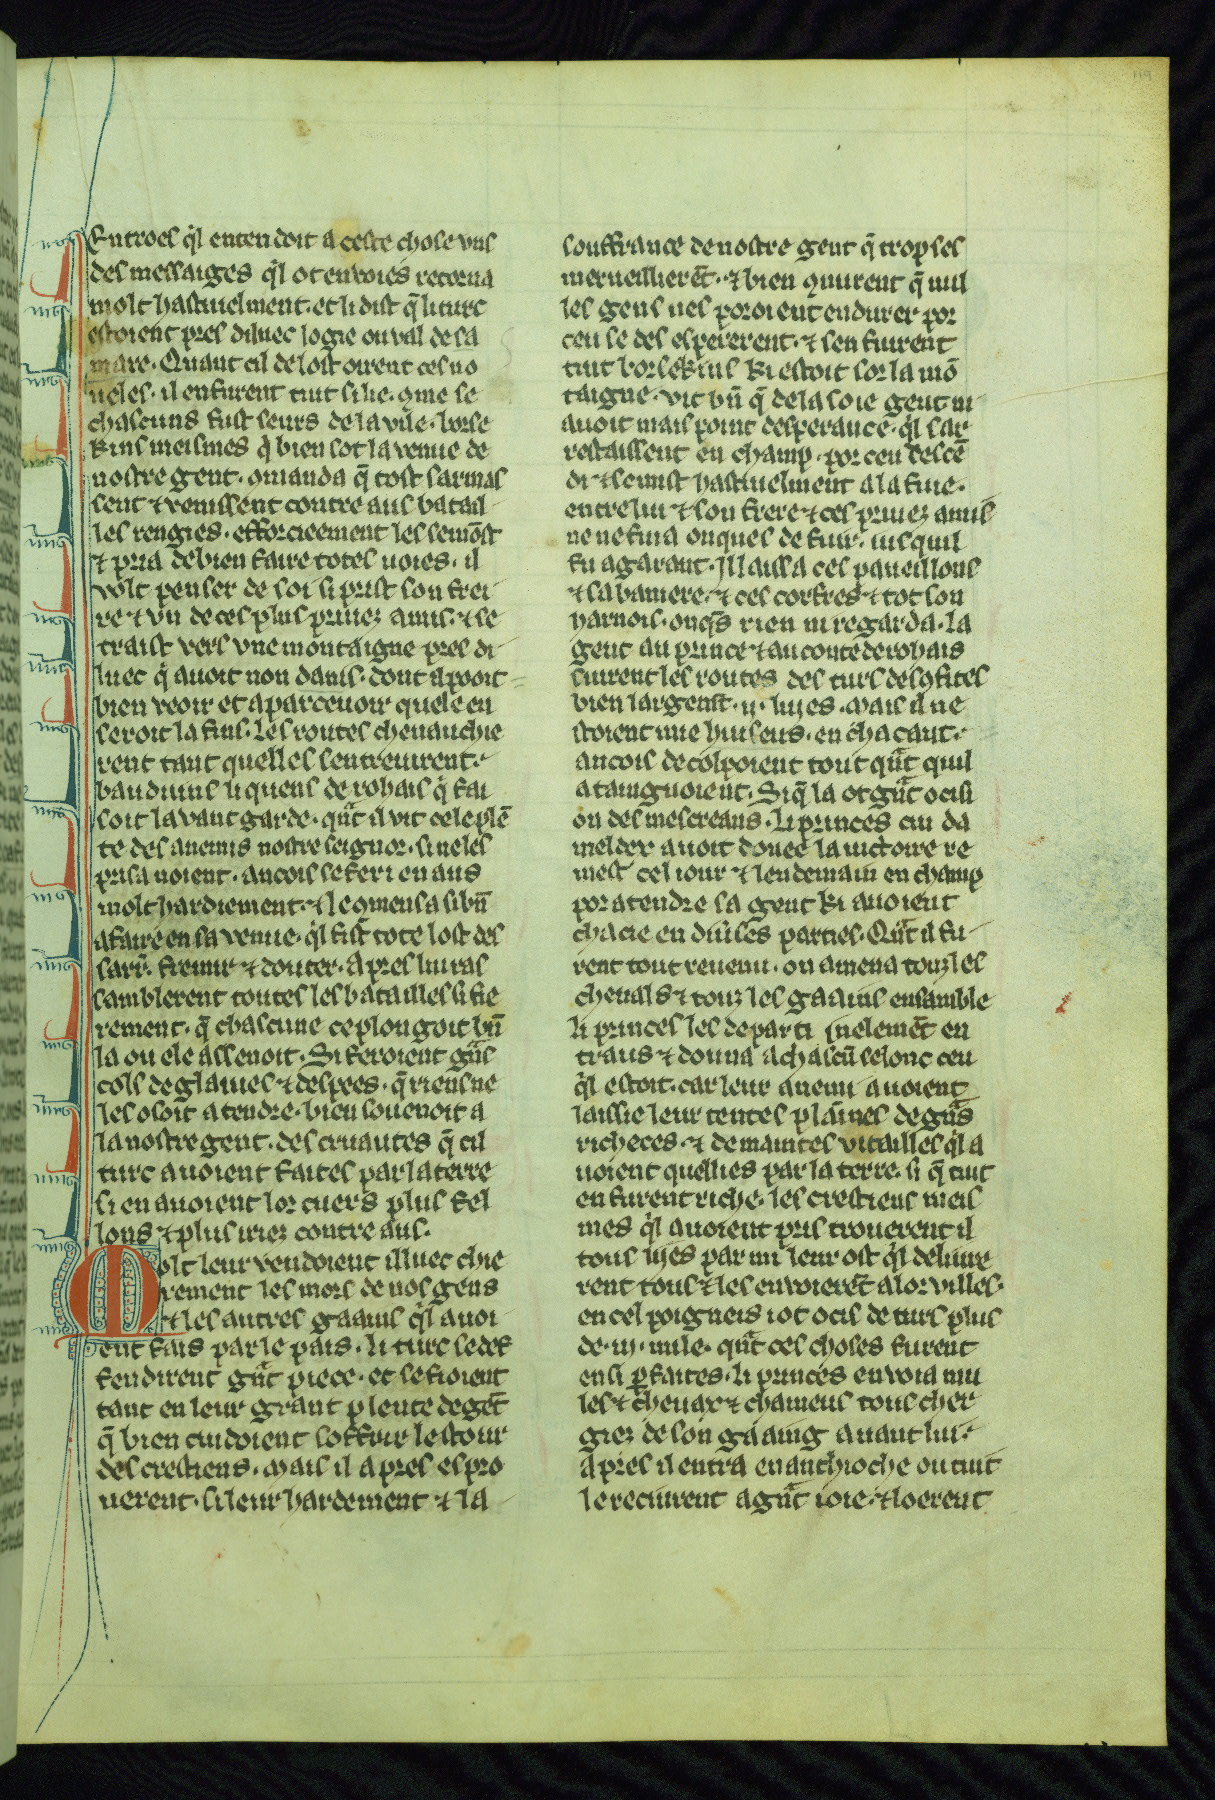 Entroes q̄l entendoit a ceste chose vns
des messaiges q̄l ot envoiés retorna
molt hastiuelment. et li dist q̄ li turc
estoient pres diluec logie ou val de sa
mare. Quant cil de lost oirent ces no
ueles. il en furent tuit si lie. 9me se
chascuns fust seurs de la vīe. borse
kins meismes q̄ bien sot la venue de
nostre gent. 9manda q̄ tost sarmas
sent ⁊ venissent contre aus batail
les rengies. efforcieement les semōst
⁊ pria de bien faire totes uoies. il
volt penser de soi si prist son frei
re ⁊ vn de ces plus priuez amis. ⁊ se
traist vers vne montaigne pres di
luec q̄ auoit non danis. dont a pooit
bien veoir et aparceuoir quele en
seroit la fins. Les routes cheuauchie
rent tant quelles sentreuirent.
bauduins li quens de rohais q̄ fai
soit lauant garde. qūt il vit cele plē
te des anemis nostre seignor. si ne les
prisa noient. ancois se feri en aus
molt hardiement. ⁊ le 9mensa si bn̄
a faire en sa venue. q̄l fist tote lost des
sarr̄. fremir ⁊ douter. Apres lui ras
samblerent toutes les batailles si fie
rement. q̄ chascune ce plongoit bn̄
la ou ele assenoit. Si feroient gn̄s
cols de glaiues ⁊ despees. q̄ riens ne
les osoit atendre. bien souenoit a
la nostre gent. des cruautes q̄ cil
turc auoient faites par la terre
si en auoient lor cuers plus fel
lons ⁊ plus iriez contre aus.
Molt leur vendoient illuec chie
rement les mors de nos gens
⁊ les autres gaains q̄l auoi
ent fais par le pais. li turc se def
fendirent gn̄t piece. et se fioient
tant en leur grant plente de gēt
q̄ bien cuidoient soffrir lestour
des crestiens. mais il apres espro
uerent. si leur hardement ⁊ la
souffrance de nostre gent q̄ trop ses
merueillierēt. ⁊ bien 9nurent q̄ nul
les gens nes poroient endurer por
ceu se des espererent. ⁊ sen fuirent
tuit borsekins ki estoit sor la mō
taigne. vit bn̄ q̄ de la soie gent ni
auoit mais point desperance. q̄l sar
restaissent en champ. por ceu descē
di ⁊ se mist hastiuelment a la fuie.
entre lui ⁊ son frere ⁊ ces priuez amis
ne ne fina onques de fuir. iusquil
fu a garant. Il laissa ces paueillons
⁊ sa baniere. ⁊ ces coffres ⁊ tot son
harnois. onq̄s rien ni regarda. la
gent au prince ⁊ au conte de rohais
suirent les routes des turs des9fites
bien largemēt .ij. liues. mais il ne
stoient mie huiseus. en chacant.
ancois decolpoient tout qūt quil
ataingnoient. Si q̄ la ot gn̄t ocisi
on des mescreans. li princes cui da
meldex auoit donee la uictoire re
mest cel iour ⁊ lendemain en champ
por atendre sa gent ki auoient
chacie en diūses parties. Qūt il fu
rent tout reuenu. on amena touz les
cheuals ⁊ touz les gaains ensamble
li princes les departi inelemēt en
traus ⁊ donna a chascū selonc ceu
q̄l estoit. car leur anemi auoient
laissie leur tentes plainnes de gn̄s
richeces. ⁊ de maintes vitailles q̄l a
uoient quellies par la terre. si q̄ tuit
en furent riche. les crestiens meis
mes q̄l auoient pris trouerent il
tous lyes par mi leur ost q̄l deliure
rent tous ⁊ les enuoierēt a lor villes.
en cel poigneis i ot ocis de turs plus
de .iij. mile. qūt ces choses furent
ensi ꝑfaites. li princes envoia mu
les ⁊ cheuax ⁊ chameus tous cher
giez de son gaaing auant lui.
Apres il entra en anthioche ou tuit
le reciurent a gn̄t ioie. ⁊ loerent